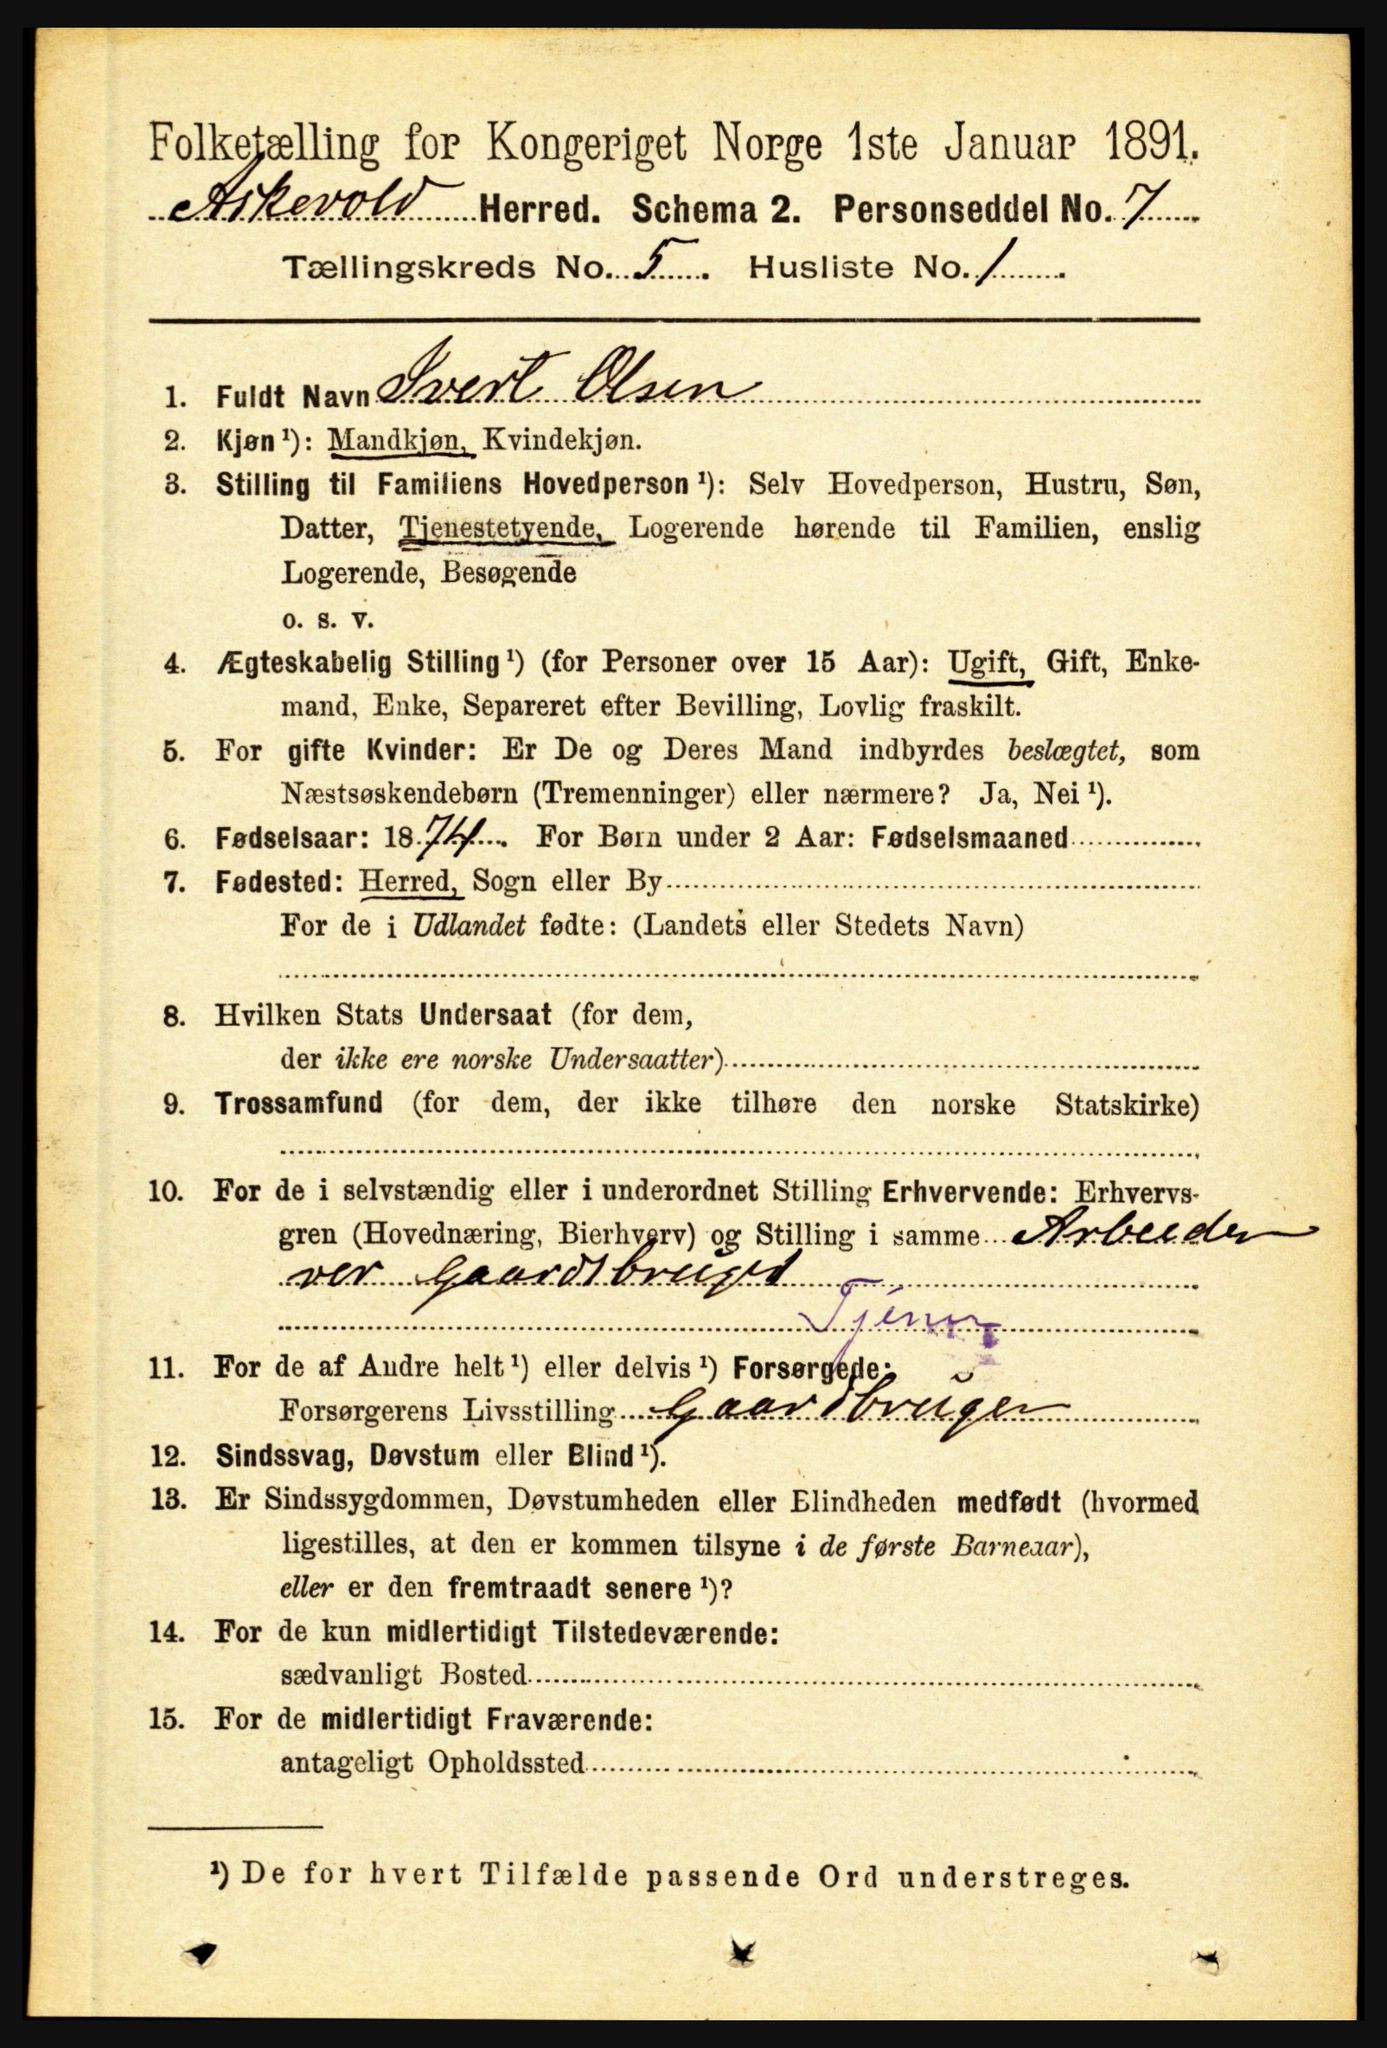 Folketælling for Kongeriget Norge 1ste Januar 1891.
Askevold Herred. Schema 2. Personseddel No. 7
Tællingskreds No. 5. Husliste No. 1.
1. Fuldt Navn Ivert Olsen
2. Kjøn ¹): Mandkjøn, Kvindekjøn.
3. Stilling til Familiens Hovedperson ¹): Selv Hovedperson, Hustru, Søn,
Datter, Tjenestetyende, Logerende hørende til Familien, enslig
Logerende, Besøgende
o. s. v.
4. Ægteskabelig Stilling ¹) (for Personer over 15 Aar): Ugift, Gift, Enke-
mand, Enke, Separeret efter Bevilling, Lovlig fraskilt.
5. For gifte Kvinder: Er De og Deres Mand indbyrdes beslægtet, som
Næstsøskendebørn (Tremenninger) eller nærmere? Ja, Nei ¹).
6. Fødselsaar: 1874. For Børn under 2 Aar: Fødselsmaaned
7. Fødested: Herred, Sogn eller By
For de i Udlandet fødte: (Landets eller Stedets Navn)
8. Hvilken Stats Undersaat (for dem,
der ikke ere norske Undersaatter)
9. Trossamfund (for dem, der ikke tilhøre den norske Statskirke)
10. For de i selvstændig eller i underordnet Stilling Erhvervende: Erhvervs-
gren (Hovednæring, Bierhverv) og Stilling i samme Arbeeder
ver Gaardsbruget
Tjener
11. For de af Andre helt ¹) eller delvis ¹) Forsørgede:
Forsørgerens Livsstilling Gaardbruger
12. Sindssvag, Døvstum eller Blind ¹).
13. Er Sindssygdommen, Døvstumheden eller Blindheden medfødt (hvormed
ligestilles, at den er kommen tilsyne i de første Barneaar),
eller er den fremtraadt senere ¹)?
14. For de kun midlertidigt Tilstedeværende:
sædvanligt Bosted
15. For de midlertidigt Fraværende:
antageligt Opholdssted
¹) De for hvert Tilfælde passende Ord understreges.